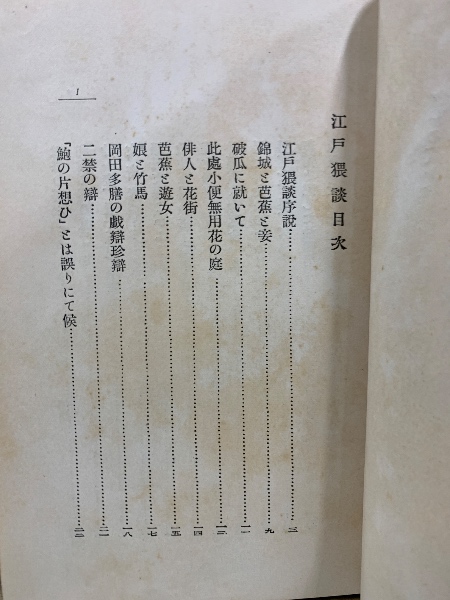 江戸猥談目次
江戸猥談序説……三
錦城と芭蕉と妾……九
破瓜に就いて……一一
此處小便無用花の庭……一三
俳人と花街……一四
芭蕉と遊女……一五
娘と竹馬……一七
岡田多膳の戯辯珍辯……一八
二禁の辯……二一
『鮑の片想ひ』とは誤りにて候……二三
1